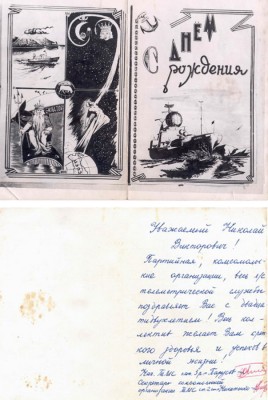 С ДНЕМ
рождения
Уважаемый Николай
Викторович!
Партийная, комсомоль-
ские организации, весь л/с
телеметрической службы
поздравляет Вас с
Кол-
лектив желает Вам креп-
кого здоровья и успехов в
личной жизни.
Секретарь комсомольской
организации